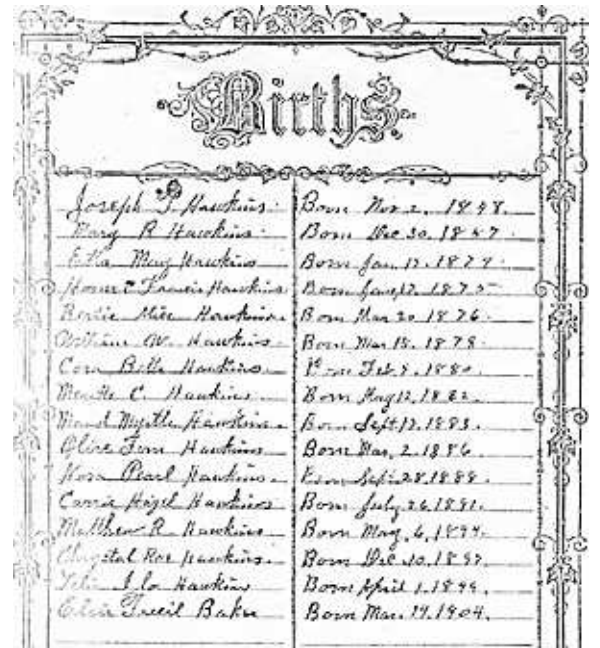 Births
Joseph P. Hawkins. Born Nov. 2. 1848.
Mary R Hawkins. Born Dec 30. 1847
Etta May Hawkins Born Jan. 17.
Francis Hawkins Born 12. 1875
Hawkins. Born Mar 20 1876.
W. Hawkins. Born Mar. 15. 1878.
Cora Belle Hawkins. Feb. 8. 1880.
C. Hawkins Born May 12. 1882.
Maud Myrtle Hawkins. Born Sept. 17. 1883.
Olive Fern Hawkins Born Mar. 2. 1886
Pearl Hawkins. Sept. 28. 1888.
Carrie Hazel Hawkins Born July 26. 1891.
Matthew R. Hawkins Born May. 6. 1894.
Chrystal Rae Hawkins. Born Dec 10. 1897.
Hawkins Born April 1. 1899.
Baker Born Mar. 19. 1904.